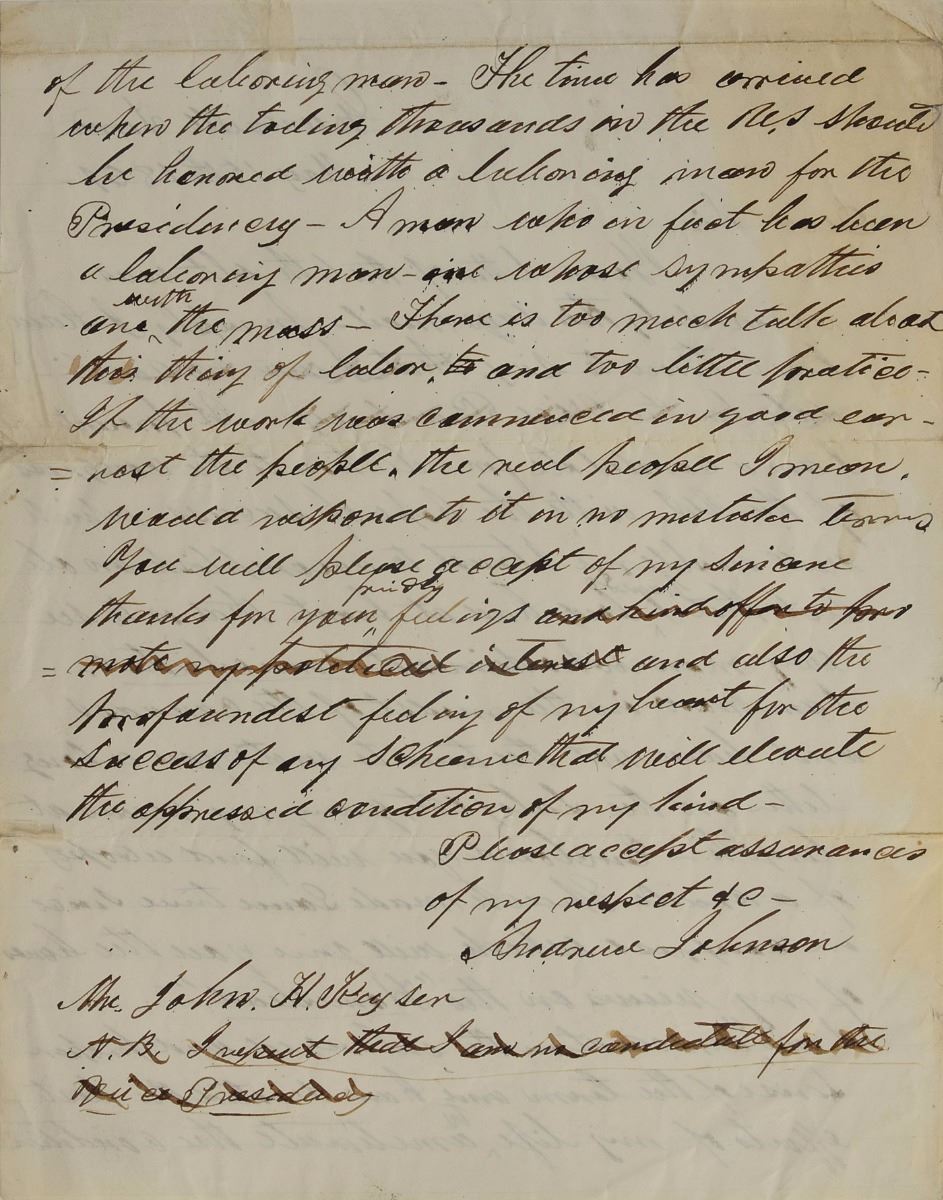 of the laboring man - The time has arrived
when the toiling thousands in the U.S should
be honored with a laboring man for the
Presidency - A man who in fact has been
a laboring man - one whose sympathies
with
are the mass - There is too much talk about
this thing of labor, to and too little pratice -
If the work was commenced in good ear -
= nest the people. the real people I mean.
would respond to it in no mistake terms
You will please accept of my sincere
frindly
thanks for your feelings and kind offer to pro
= mote my political interest and also the
profoundest feeling of my heart for the
success of any scheme that will elevate
the oppressed condition of my kind -
Please accept assurances
of my respect &c -
Andrew Johnson
Mr. John. H. Keyser
N.B. I repeat that I am no candidate for the
Vice Presidency